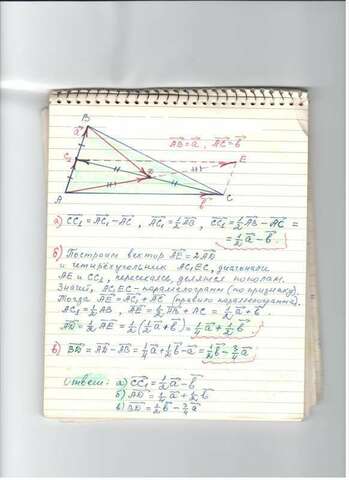 B
a⃗
AB⃗=a⃗, AC⃗=b⃗
C₁
E
D
A
b⃗
C
а) CC₁⃗=AC₁⃗-AC⃗, AC₁⃗=½AB⃗, CC₁⃗=½AB⃗-AC⃗=
=½a⃗-b⃗.
б) Построим вектор AE⃗=2AD⃗
и четырёхугольник AC₁EC, диагонали
AE и CC₁, пересекаясь, делятся пополам.
Значит, AC₁EC-параллелограмм (по признаку).
Тогда AE⃗=AC₁⃗+AC⃗ (правило параллелограмма).
AC₁⃗=½AB⃗, AE⃗=½AB⃗+AC⃗=½a⃗+b⃗.
AD⃗=½AE⃗=½(½a⃗+b⃗)=¼a⃗+½b⃗.
в) BD⃗=AD⃗-AB⃗=¼a⃗+½b⃗-a⃗=½b⃗-¾a⃗
Ответ: а) CC₁⃗=½a⃗-b⃗
б) AD⃗=¼a⃗+½b⃗
в) BD⃗=½b⃗-¾a⃗